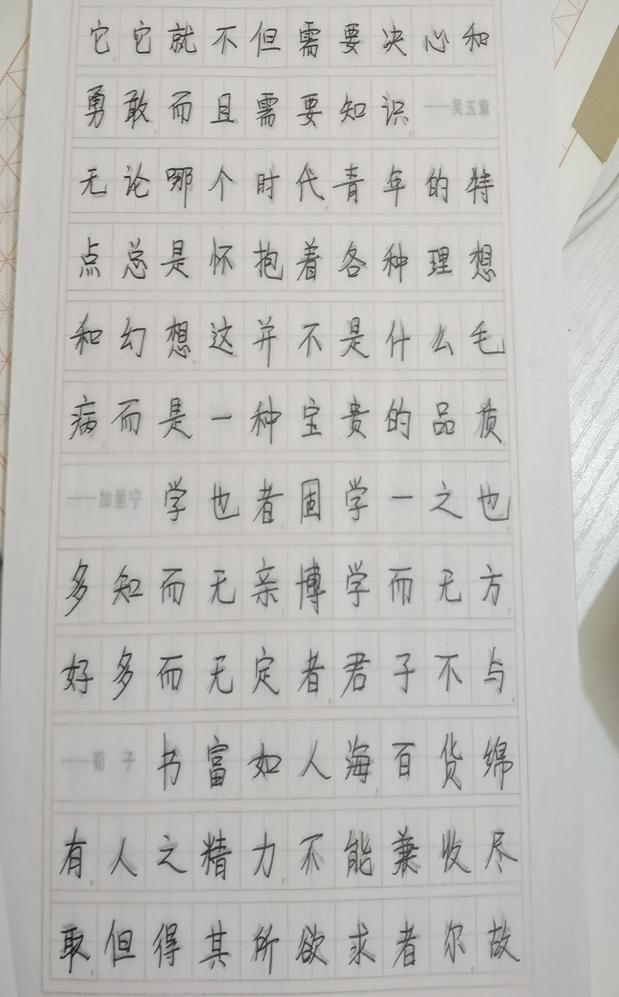 它它就不但需要决心和
勇敢而且需要知识 ——吴玉章
无论哪个时代青年的特
点总是怀抱着各种理想
和幻想这并不是什么毛
病而是一种宝贵的品质
——加里宁 学也者固学一之也
多知而无亲博学而无方
好多而无定者君子不与
——荀子 书富如人海百货绵
有人之精力不能兼收尽
取但得其所欲求者尔故